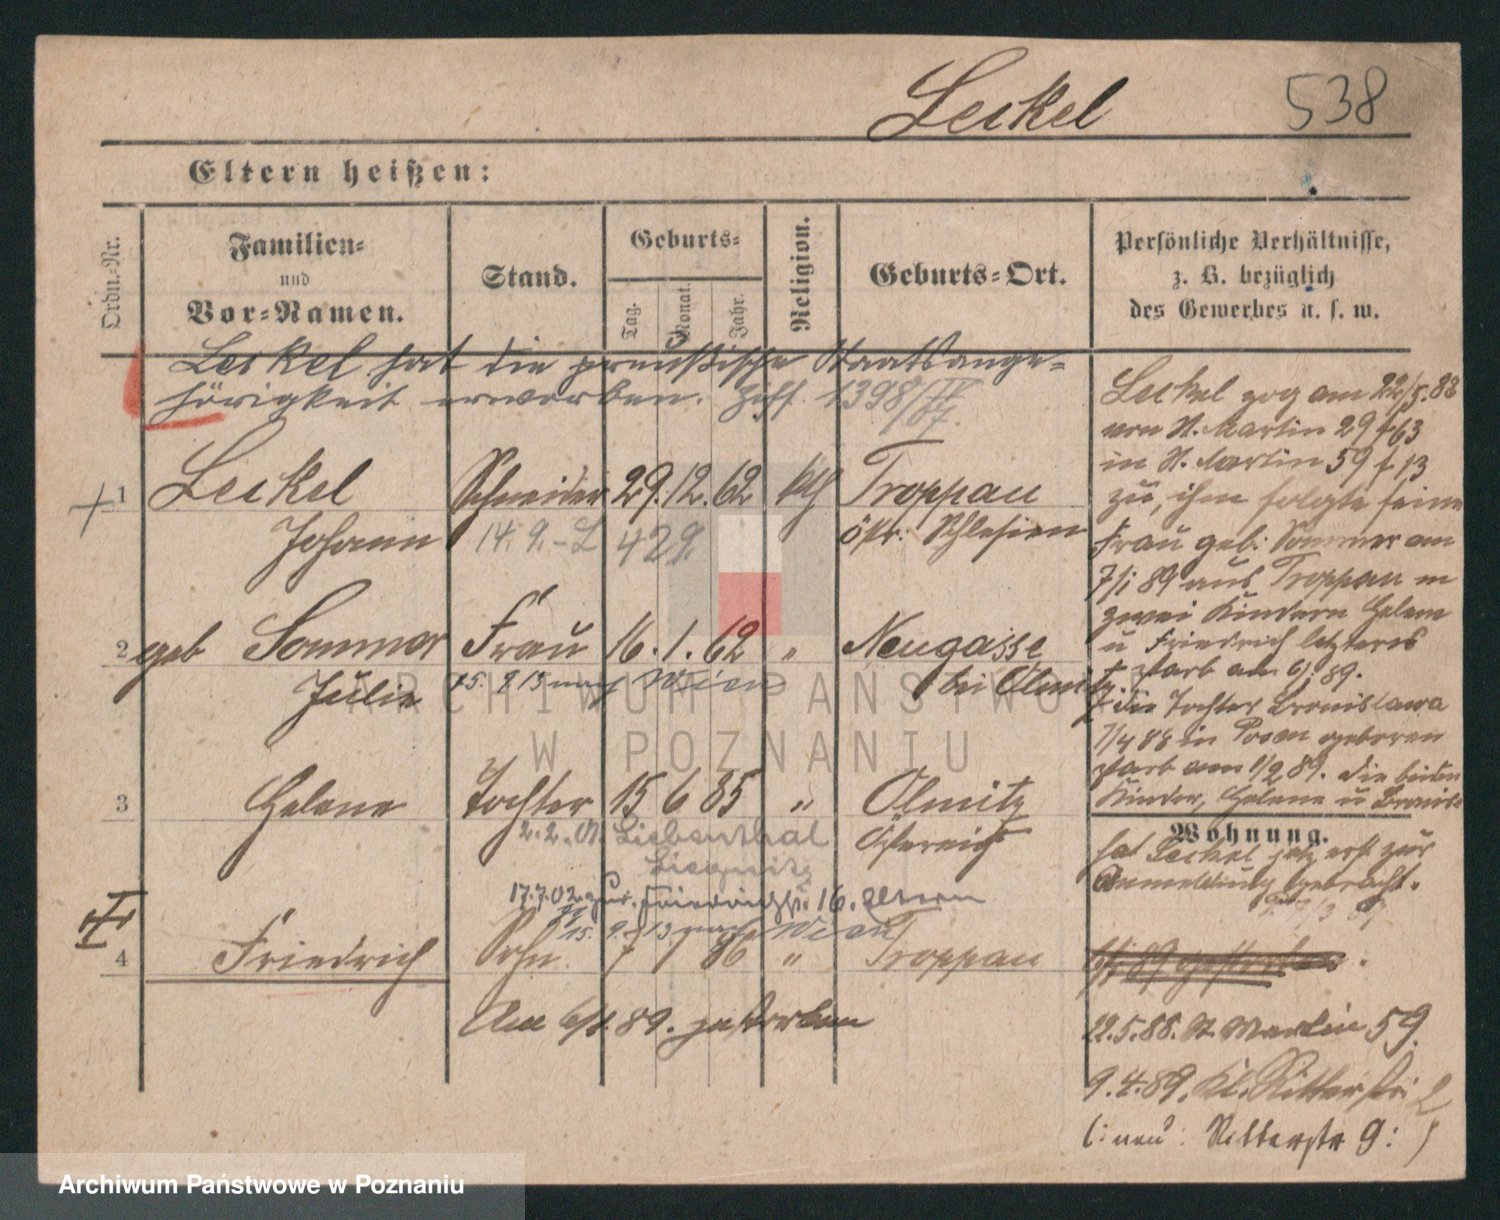 Leckel 538
Eltern heißen:
Ordn.-Nr.
Familien-
und
Vor-Namen.
Stand.
Geburts-
Tag.
Monat.
Jahr.
Religion.
Geburts-Ort.
Persönliche Verhältnisse,
z. B. bezüglich
des Gewerbes u. s. w.
Leckel hat die preußische Staatsange-
hörigkeit erworben. 1398/
1 Leckel Schneider 29. 12. 62 kth Troppau
Johann 14. 2. 429 östr. Schlesien
2 geb Sommer Frau 16. 1. 62 " Neugasse
Julie 15. 9 13 nach Wien bei Olmütz
3 Helene Tochter 15 6 85 " Olmütz
2. 2. 01. Liebenthal Österreich
Liegnitz
17.7.02 zur. Friedrichstr. 16. Eltern
15. 9. 13 nach Wien
4 Friedrich Sohn 7 86 " Troppau
Am 6/ 89. gestorben
Leckel zog am 22/5. 88
von St. Martin 29 f 63
in St. Martin 59 f 13
zu, ihm folgte seine
Frau geb: Sommer am
7/1 89 aus Troppau m
zwei Kindern Helene
u Friedrich letzteres
† starb am 6/ 89.
die Tochter Bronislawa
7/4 88 in Posen geboren
starb am 1/2 89. Die beiden
Kinder, Helene u
Wohnung.
hat Leckel jetz erst zur
Anmeldung gebracht.
89 gestorben.
22.5.88. St. Martin 59.
9.4.89. Kl. Ritterstr: 2
(: neu: Ritterstr 9:)
ARCHIWUM PAŃSTWOWE
W POZNANIU
Archiwum Państwowe w Poznaniu